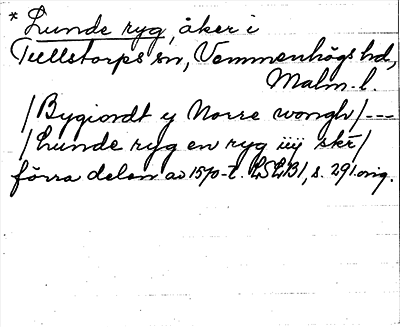 * Lunde ryg, åker i
Tullstorps sn, Vemmenhögs hd,
Malm. l.
/Bygiordt y Norre wongh/---
/Lunde ryg en ryg iiij skr/
förra delen av 1570-t. LSLB1, s. 291 orig.